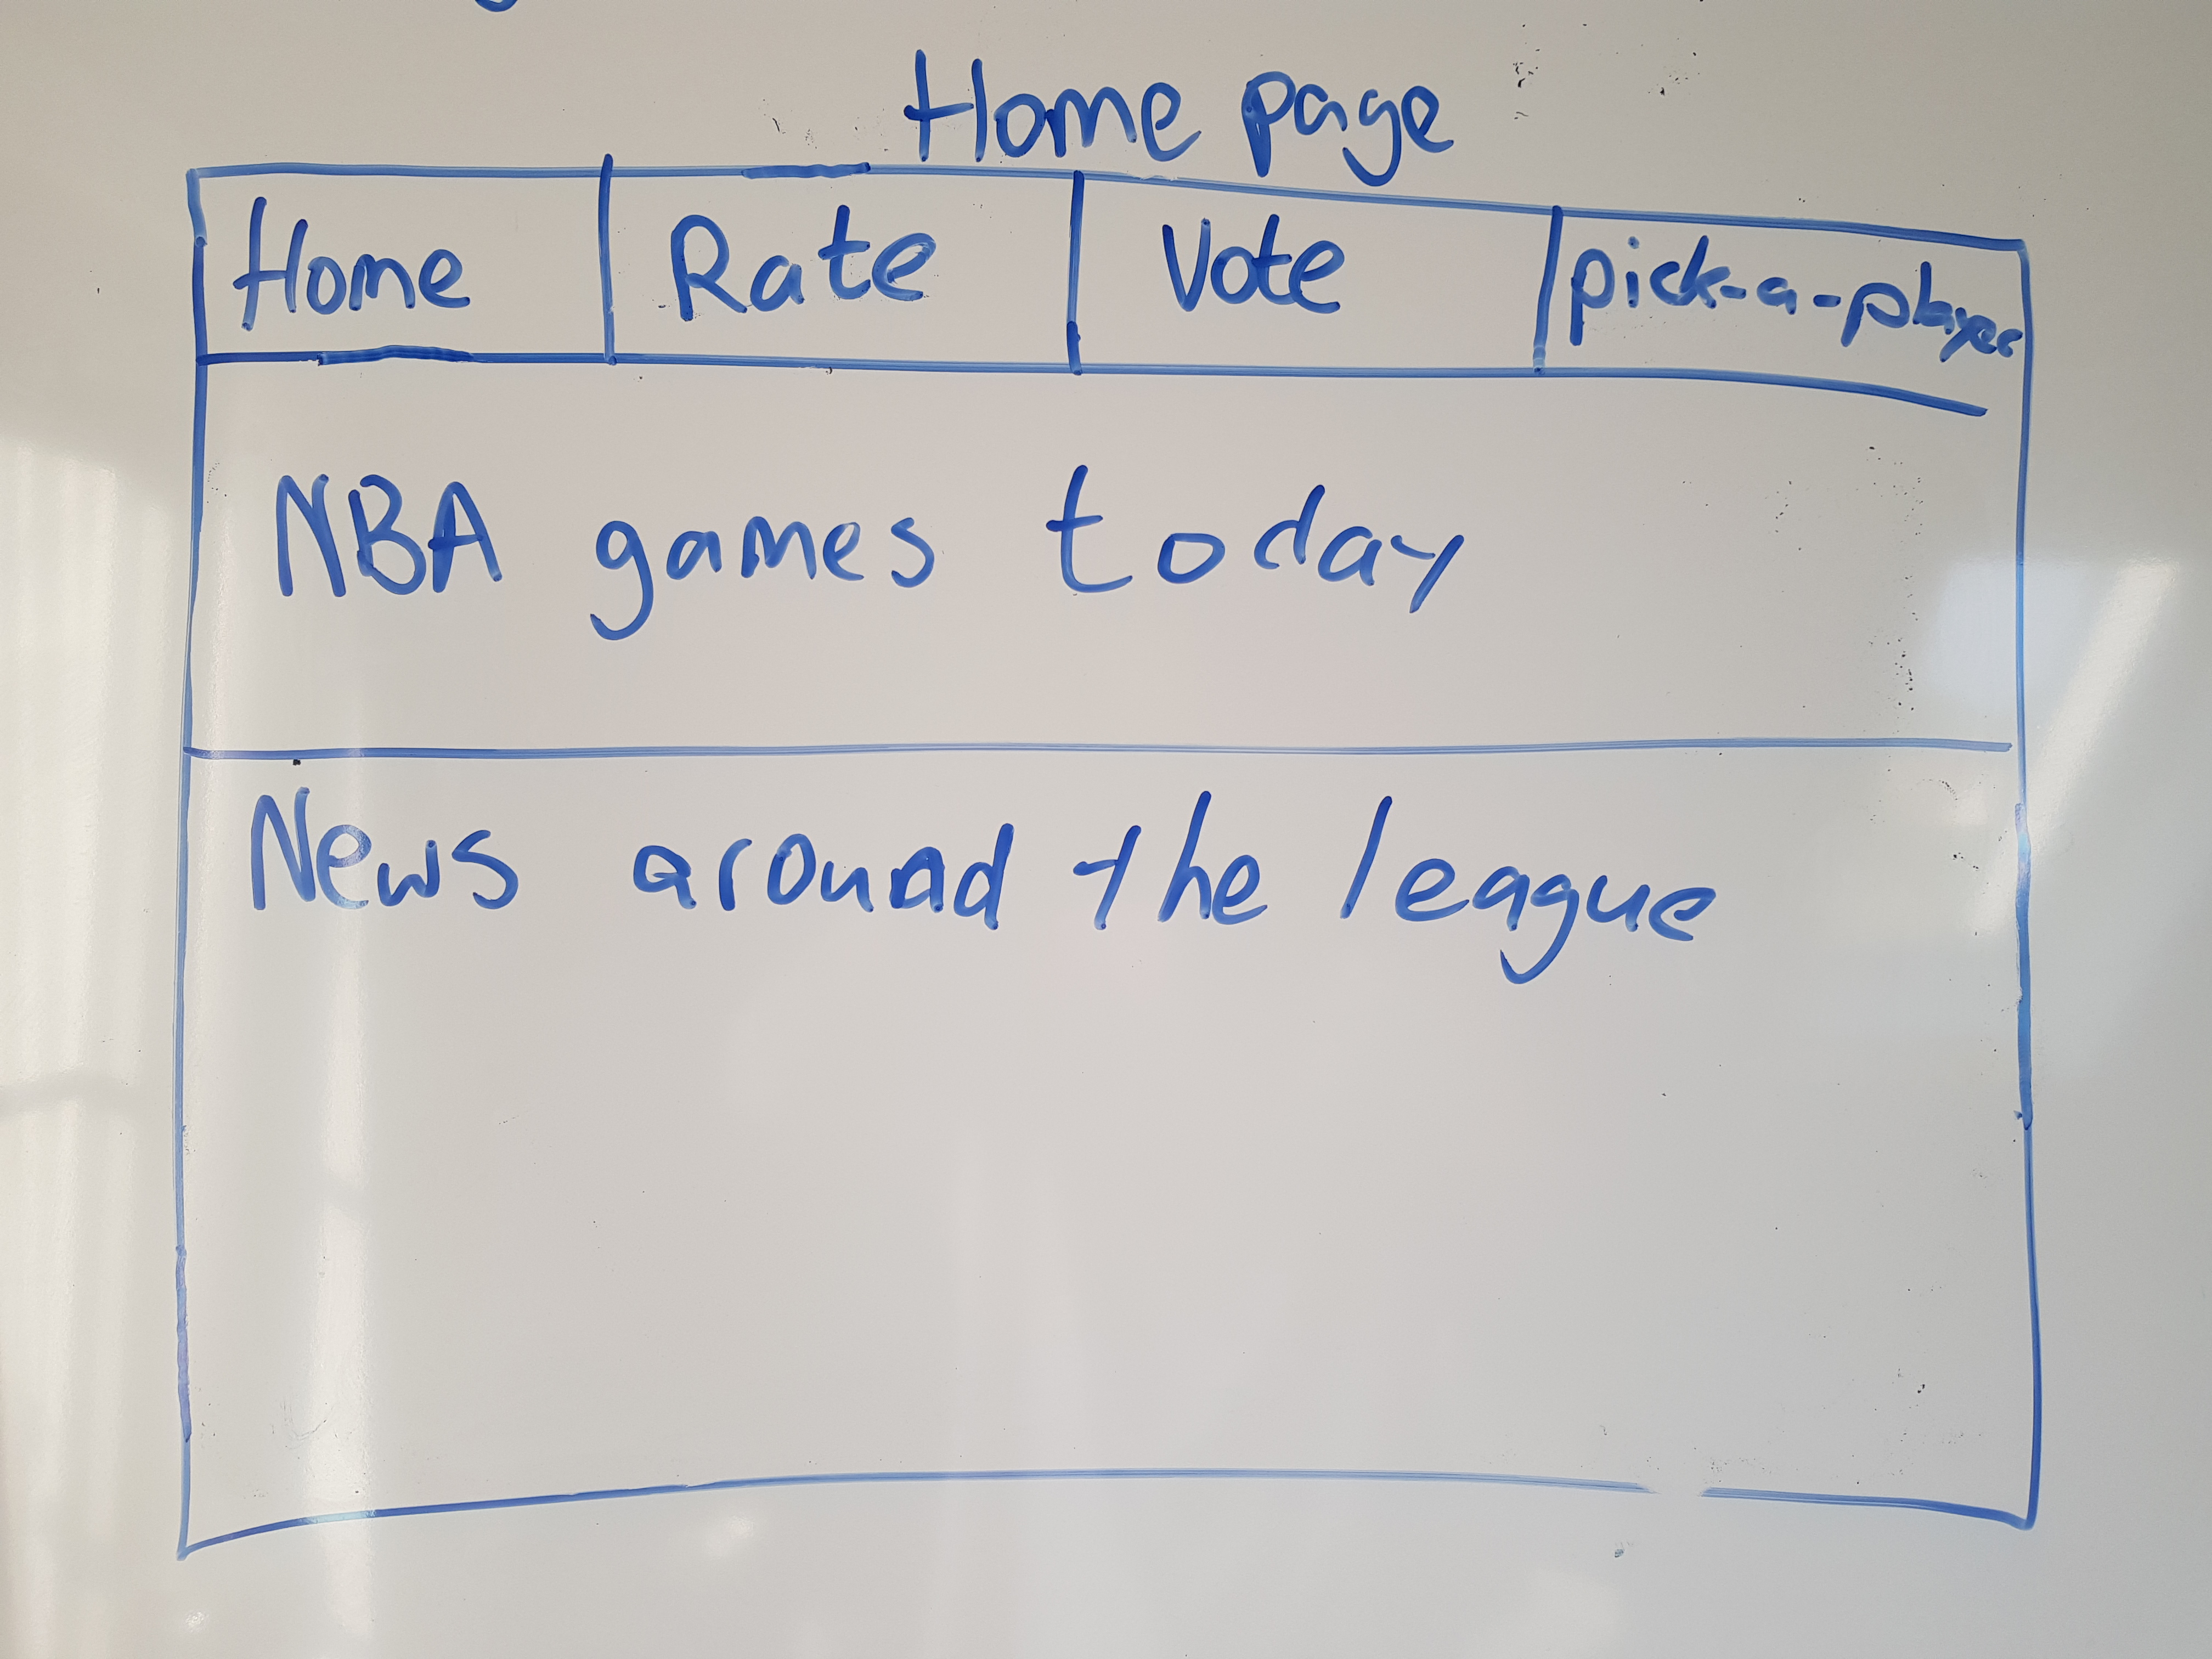 Home page
Home Rate Vote pick-a-player
NBA games today
News around the league